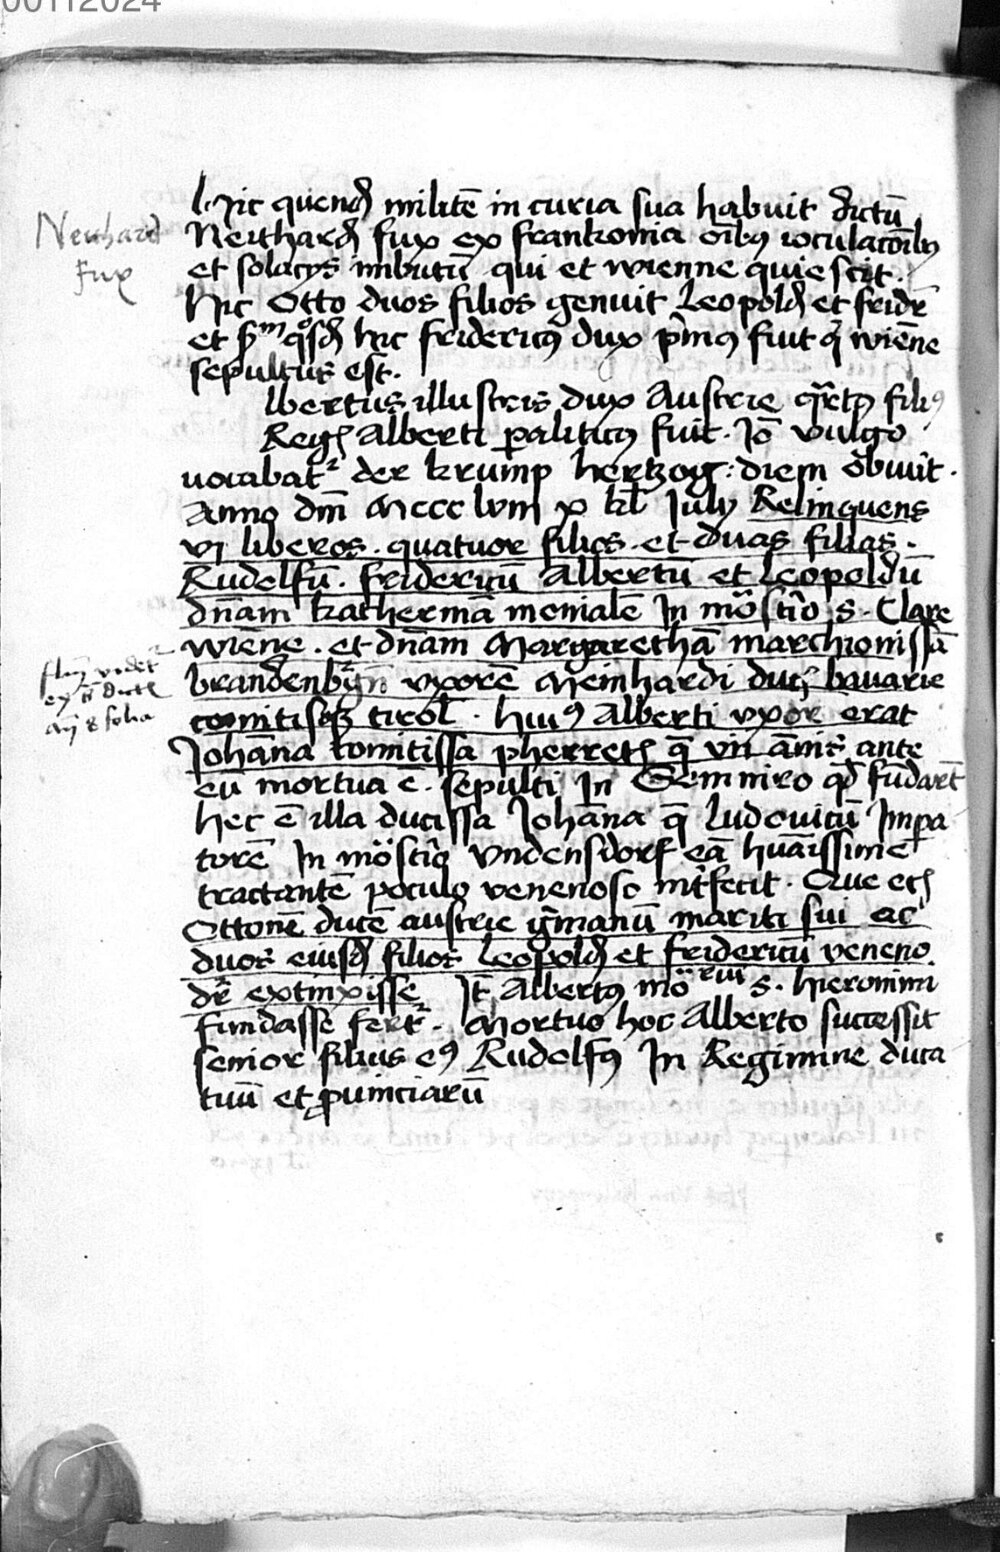 00112024
Hic quend̄ militē in curia sua habuit dictū
Neithard
Neithard̄ fux ex frankonia oībꝰ ioculatoribꝰ
fux
et solacys imbutū qui et wienne quiescit.
Hic Otto duos filios genuit Leopold̄ et fridr̄
et ẜm qͦsd̄ hic fridericꝰ dux p̄mꝰ fuit q̄ wiēne
sepultus est.
lbertus illustris dux Austrie qͣrtꝰ filiꝰ
Reḡ Alberti paliticꝰ fuit. Iō vulgo
vocabatᷣ der krump hertzog: diem obuuit.
Anno dm̄ Mccc lviij x kl̄ July Relinquens
vj liberos. quatuor filios. et duas filias.
Rudelfū. fridericū Albertū et Leopoldū
dn̄am katherinā monialē In mōstio s. Clare
wiēne. et dn̄am Margarethā marchionissā
brandenbūgn̄ vxorē Meinhardi duc̄ bauarie
comitisqꝫ tirol̄. huiꝰ Alberti vxor erat
Iohāna comitissa pherret̄ q̄ vii ānis ante
eū mortua ē. sepulti In Gemniro qd̄ fūdarūt
hec ē illa ducissa Iohāna q̄ Ludouicū Impa
torē In mōstio vndensdorf eā hūaīssime
tractantē poculo venenoso int̄fecit. Que et̄
Ottonē ducē austrie ḡmanū mariti sui ac
duos eiusd̄ filios Leopold̄ et fridericū veneno
dr̄ extinxisse It̄ Albertꝰ mōriū s. Hieronimi
fundasse fertᷣ. Mortuo hoc Alberto successit
senior filius eꝰ Rudelfꝰ In Regimine duca
tuū et ꝓuinciarū